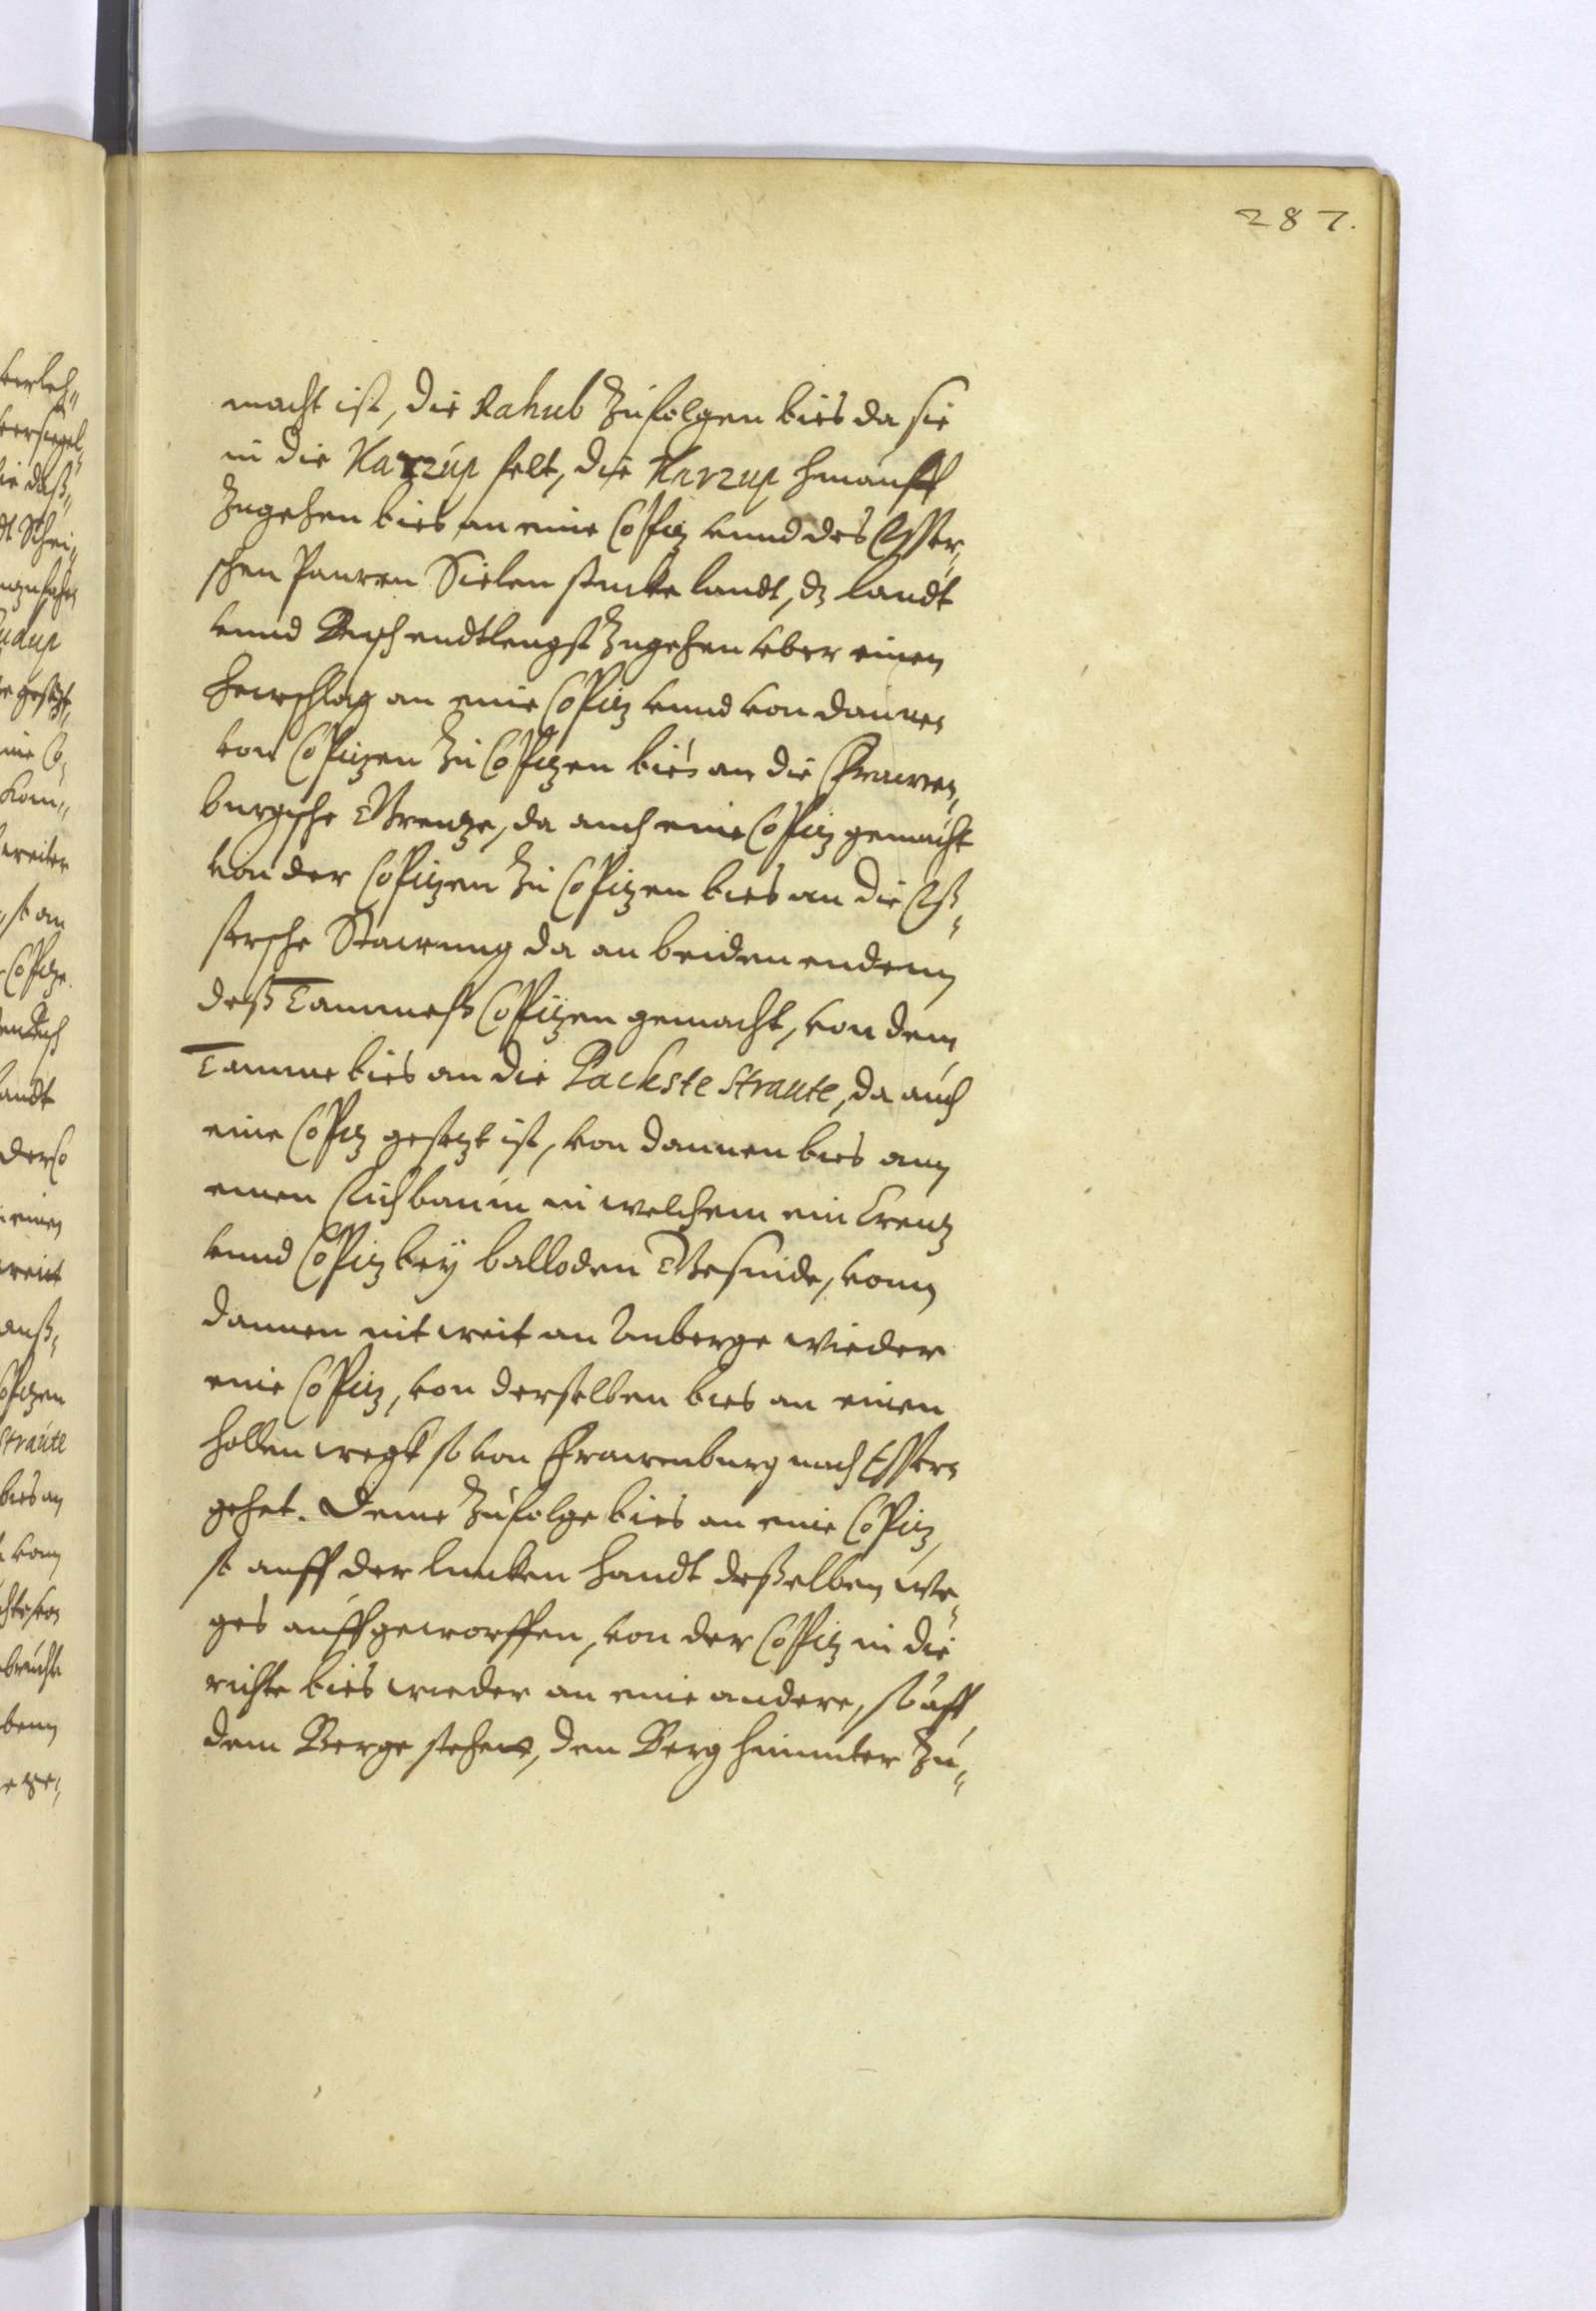 287.
macht ist, die Rahub zufolgen bies da sie
in die Karzup felt, die Karzup hinauff
zugehen bies an eine Copitz vnnd des Esser¬
schen Pauren Sielen stucke landt, dz landt
vnnd Busch endtlengst zugehen vber einen
Hewschlag an eine Copitz vnnd von dannen
von Copitzen zu Copitzen bies an die Frawen¬
burgische Grentze, da auch eine Copitz gemacht
von der Copitzen zu Copitzen bies an die Ess¬
sersche Stawung da an beiden endenn
dess Tammess Copitzen gemacht, von dem
Tamme bies an die Packste Straute, da auch
eine Copitz gesetzt ist, von dannen bies ann
einen Eichbaum in welchem ein Creutz
vnnd Copitz bey balloden Gesinde, vonn
dannen nit weit am Anberge wieder
eine Copitz, von derselben bies an einen
hollen wegk so von Frawenburg nach Essern
gehet. Deme zufolge bies an eine Copitz,
so auff der lincken Handt desselben we¬
ges auffgeworffen, von der Copitz in die
richte bies wieder an eine andere, so auff
dem Berge stehet, den Berg hinunter zu¬